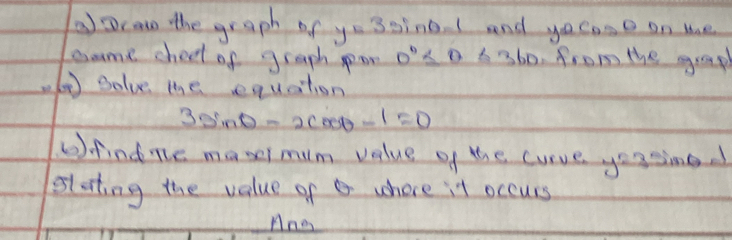 a) Draw the graph of y = 3sinθ-1 and y=cosθ on the
same sheet of graph for 0° ≤ θ ≤ 360. from the graph
(a) Solve the equation
3sinθ - 2cosθ - 1 = 0
b) find the maximum value of the curve y=3sinθ-1
stating the value of θ where it occurs
Ans